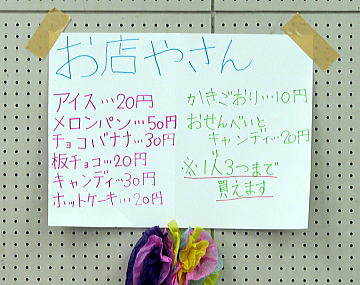 お店やさん
アイス…20円
メロンパン…50円
チョコバナナ…30円
板チョコ…20円
キャンディ…30円
ホットケーキ…20円
かきごおり…10円
おせんべいと
キャンディ…20円
※1人3つまで
買えます